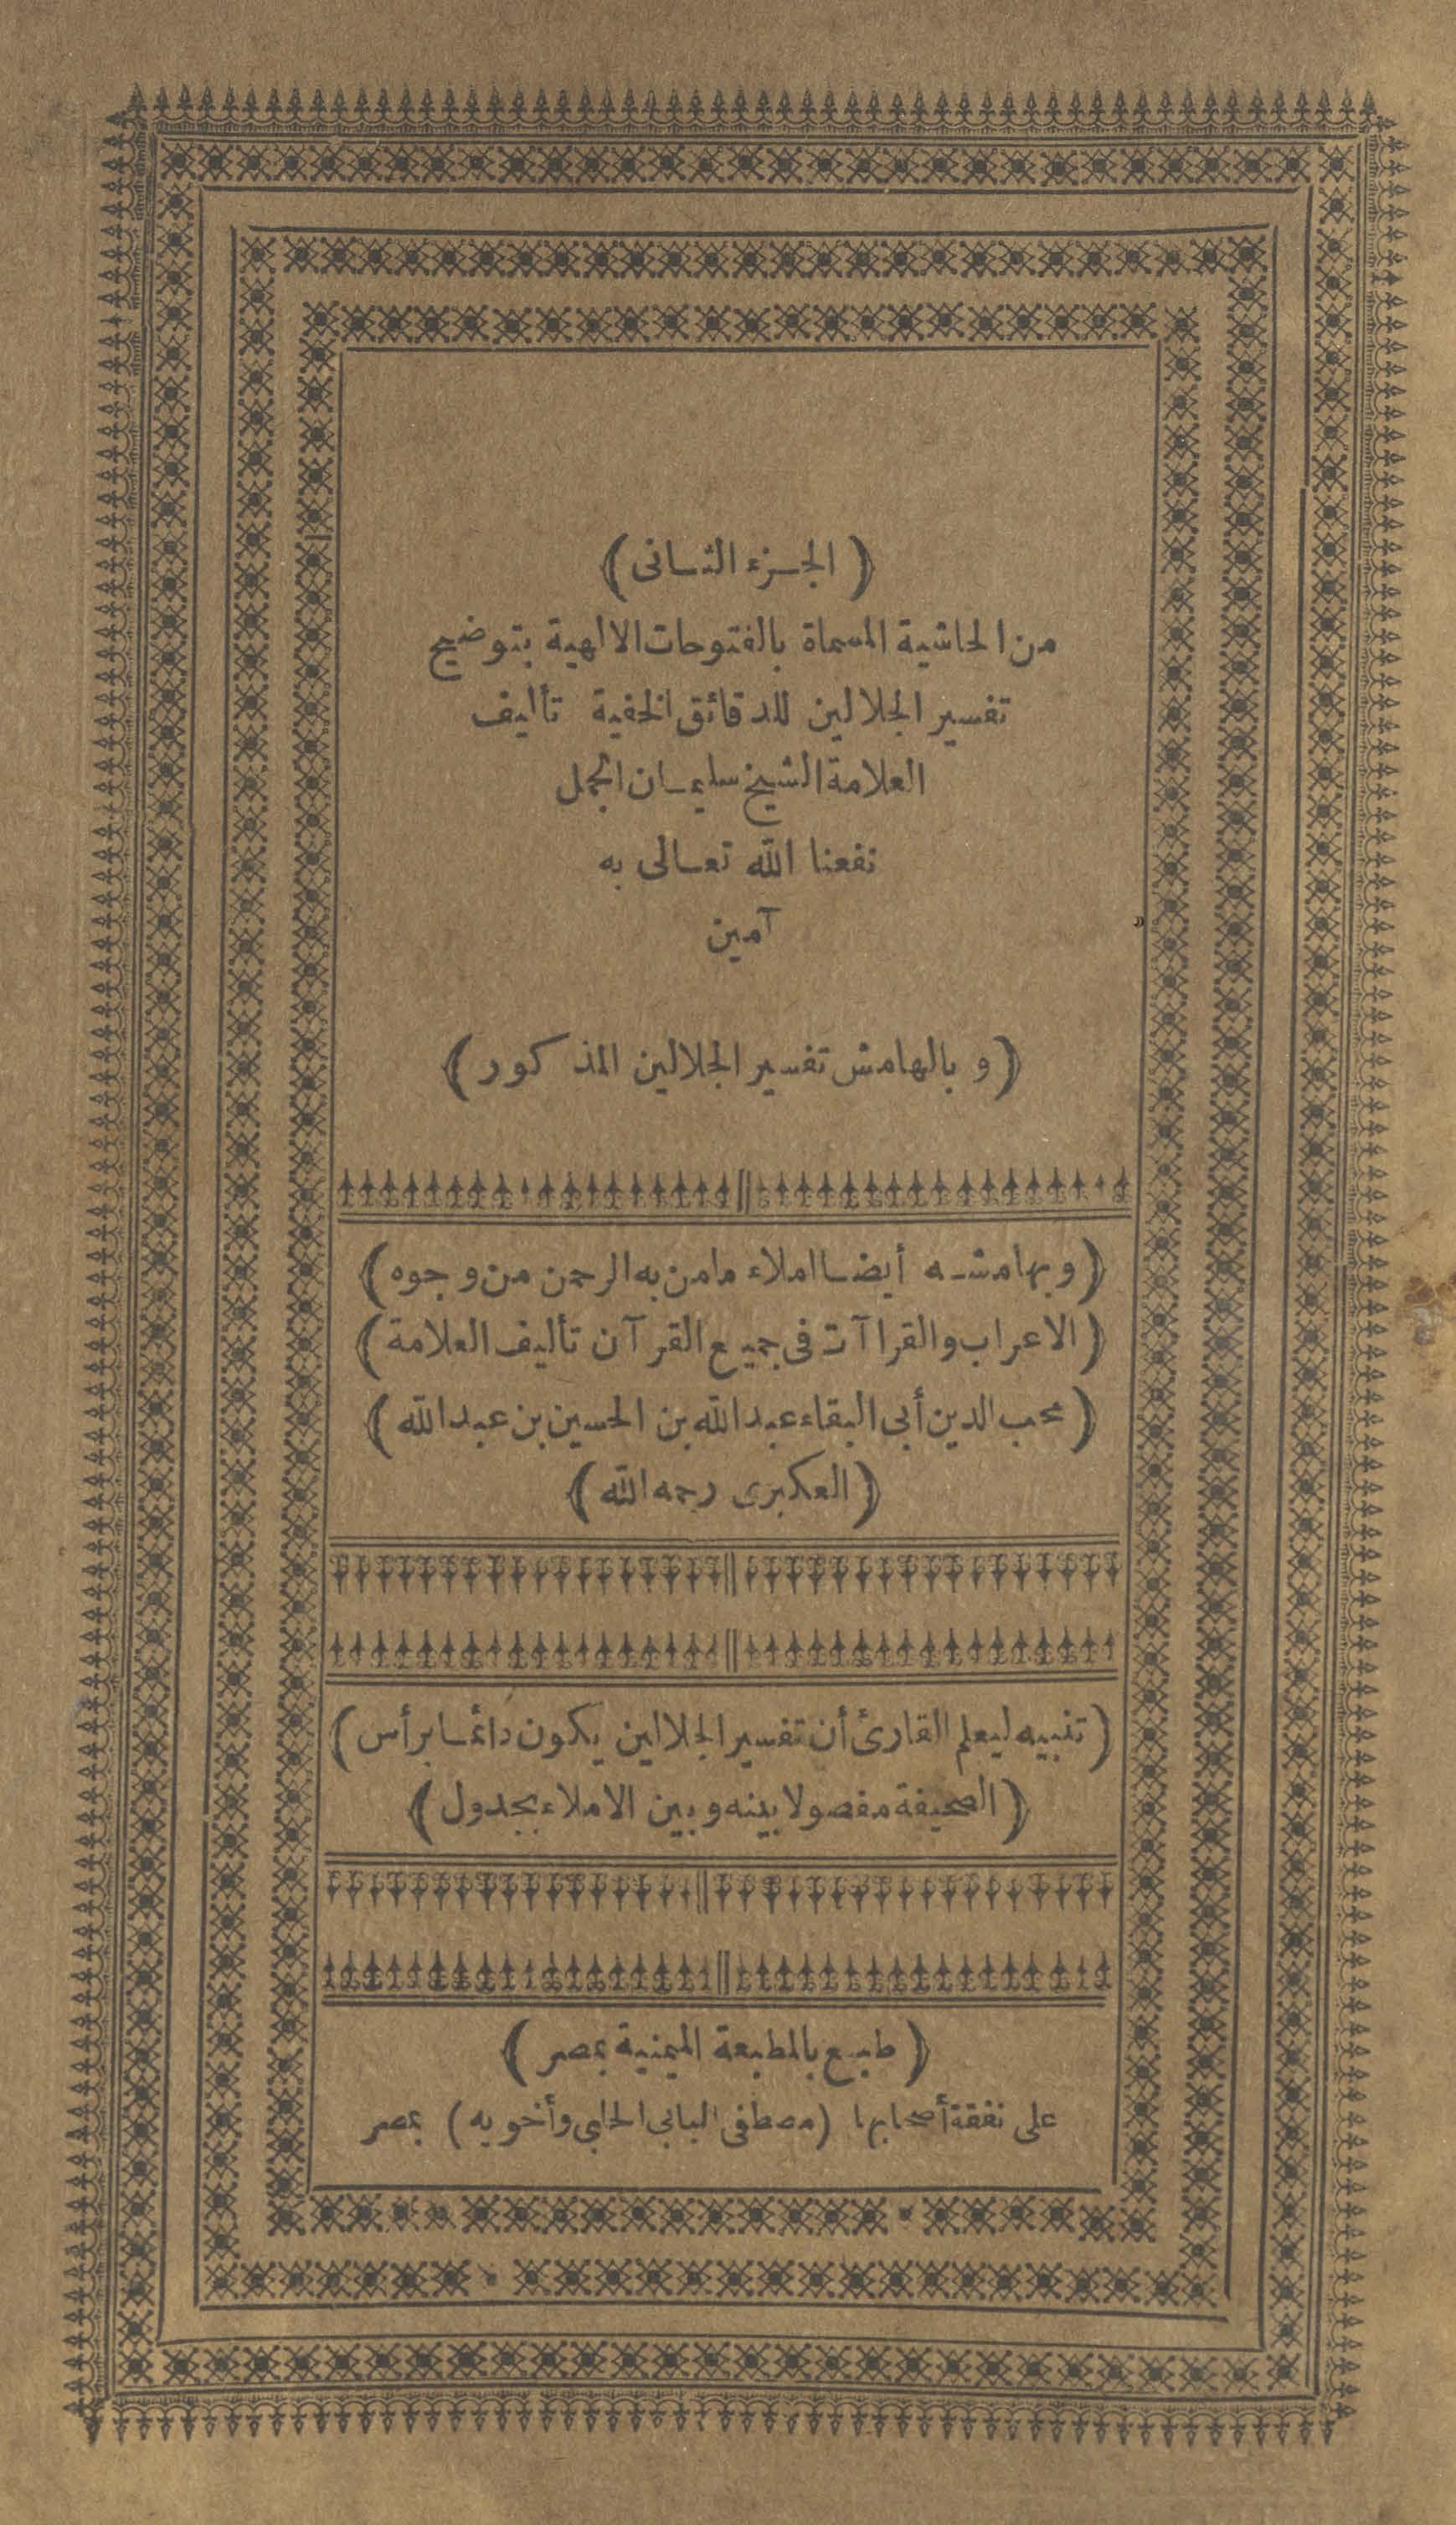 (الجزء الثاني)
من الحاشية المسماة بالفتوحات الالهية بتوضيح
تفسير الجلالين للدقائق الخفية تأليف
العلامة الشيخ سليمان الجمل
نفعنا الله تعالى به
آمين
(و بالهامش تفسير الجلالين المذكور)
(وبهامشه أيضا املاء مامن به الرحمن من وجوه)
(الاعراب والقراآت فى جميع القرآن تأليف العلامة)
(محب الدين أبى البقاء عبدالله بن الحسين بن عبدالله)
(العكبرى رحمه الله)
(تنبيه ليعلم القارئ أن تفسير الجلالين يكون دائما برأس)
(الصحيفة مفصولا بينه و بين الاملاء بجدول)
(طبع بالمطبعة الميمنية بمصر)
على نفقة أصحابها (مصطفى البابى الحلبى وأخويه) بمصر